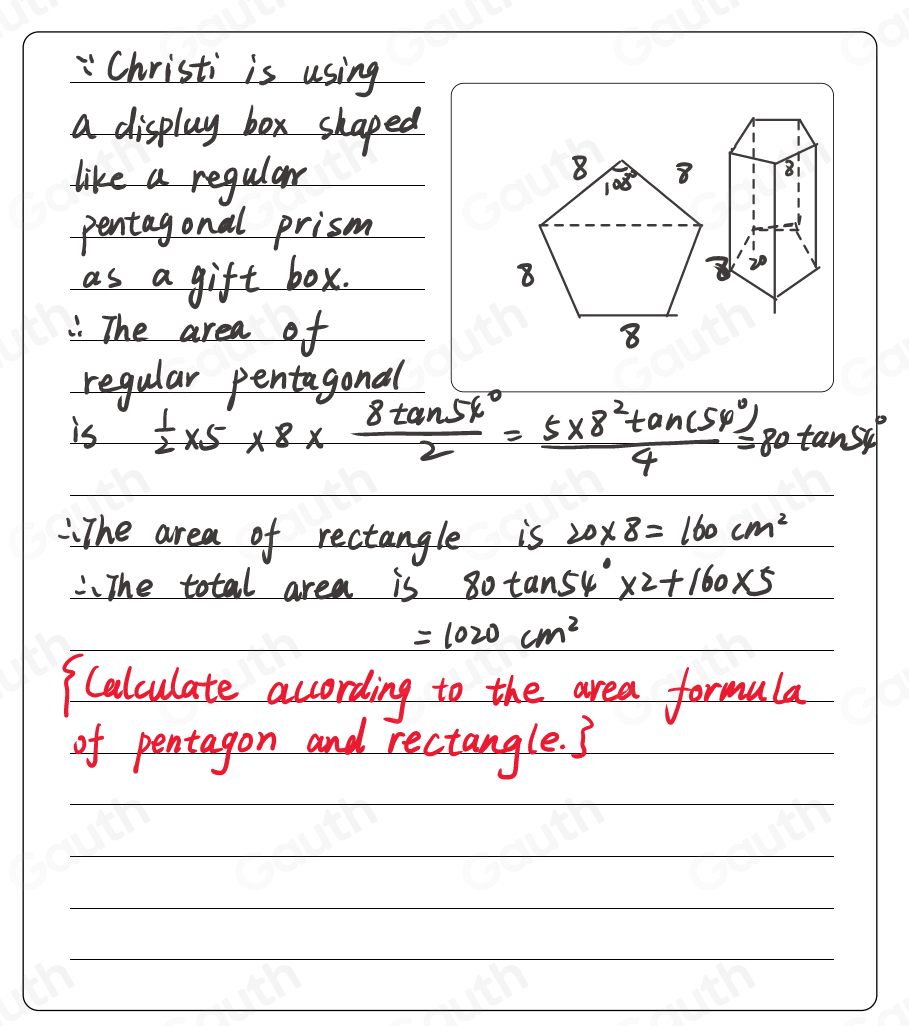 ∵ Christi is using
a display box shaped
like a regular
pentagonal prism
as a gift box.
8 8
108°
8
8
8
8 20
∴ The area of
regular pentagonal
is 1/2 ×5 ×8 × 8 tan54°/2 = 5×8² tan(54°)/4 = 80 tan54°
∴ The area of rectangle is 20×8 = 160 cm²
∴ The total area is 80 tan54° ×2+160×5
= 1020 cm²
{Calculate according to the area formula
of pentagon and rectangle.}